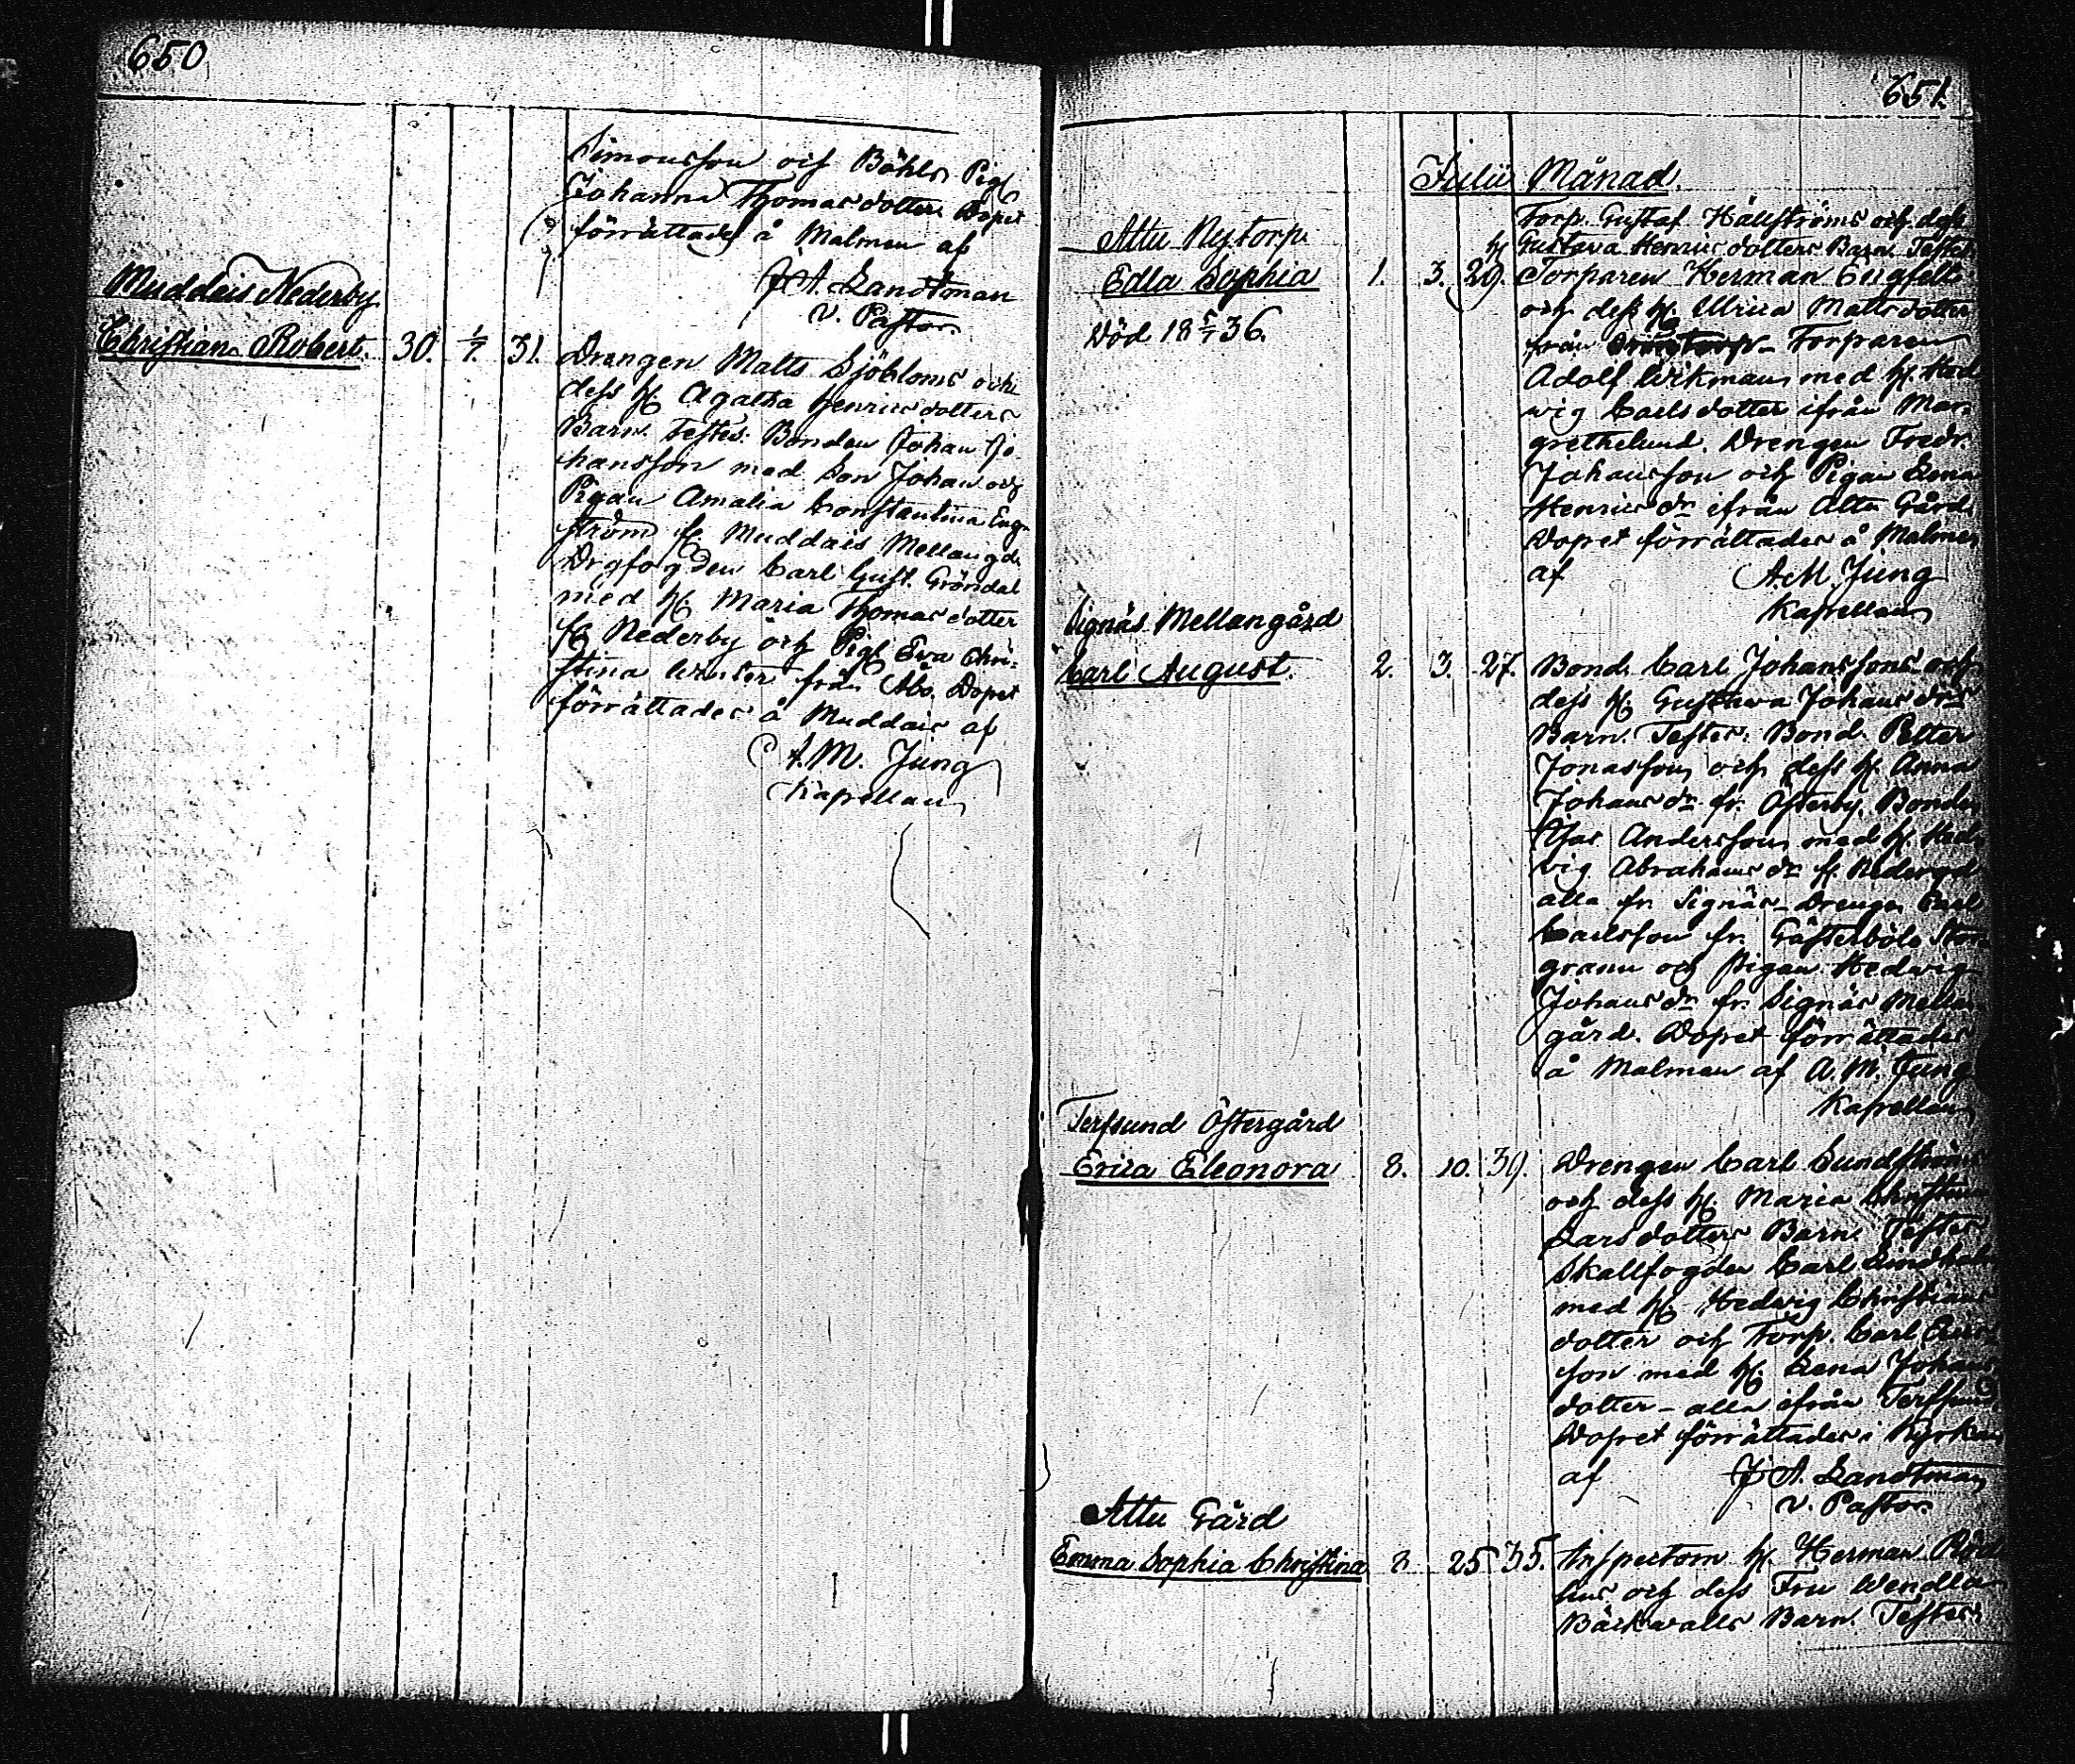 650
Simonsson och Böhls Pig.
Johanna Thomasdotter Dopet
förrättades å Malmen af
J A Sandtman
v. Pastor.
Muddais Nederby
Christian Robert. 30. 1/7 31. Drengen Matts Sjöbloms och
dess h. Agatha Henricsdotters
Barn. Testes: Bonden Johan Jo
hansson med Son Johan och
Pigan Amalia Constantina Eng-
ström fr Muddais Mellangd.
Drgfogden Carl Gust. Gröndal
med h. Maria Thomasdotter
fr Nederby och Pig. Ewa Chri-
stina Winter från Åbo. Dopet
förrättades å Muddais af
A. M. Jung
Kapellan
651.
Julii Månad.
Attu Nytorp.
Torp. Gustaf Hällströms och dess
h Gustava Henricsdotters Barn. Testes
Edla Sophia 1. 3. 29. Torparen Herman Engfelt
och dess h. Ulrica Mattsdotter
Död 18 5/7 36.
från Torparen
Adolf Wikman med h. Hed
wig Carlsdotter ifrån Mar-
grethelund. Drengen Fredr.
Johansson och Pigan Lena
Henricsdr ifrån Attu Gård
Dopet förrättades å Malmen
af A M. Jung
Kapellan
Signäs Mellangård
Carl August. 2. 3. 27. Bond. Carl Johanssons och
dess h. Gustawa Johansdrs
Barn. Testes: Bond. Petter
Jonasson och dess h. Anna
Johansdr fr. Österby, Bonden
Andersson med h. Hed
vig Abrahamsdr fr. Nedergd
alla fr Signäs - Drengen Carl
Carlsson fr. Gästerböle Stor
grann och Pigan Hedwig
Johansdr fr. Signäs Mellan
gård. Dopet förrättades
å Malmen af A. M. Jung
Kapellan
Terfsund Östergård
Erica Eleonora 8. 10. 39. Drengen Carl Sundströms
och dess h. Maria Christina
Larsdotters Barn. Testes
Skallfogden Carl Lindholm
med h. Hedvig Christians
dotter och Torp. Carl Erics
son med h. Lena Johans
dotter - alla ifrån Terfsund
Dopet förrättades i Kyrkan
af J A. Sandtman
v. Pastor.
Attu Gård
Emma Sophia Christina 8 25 35. Inspectorn h. Herman
och dess Fru Wendla
Bäckvalls Barn. Testes: